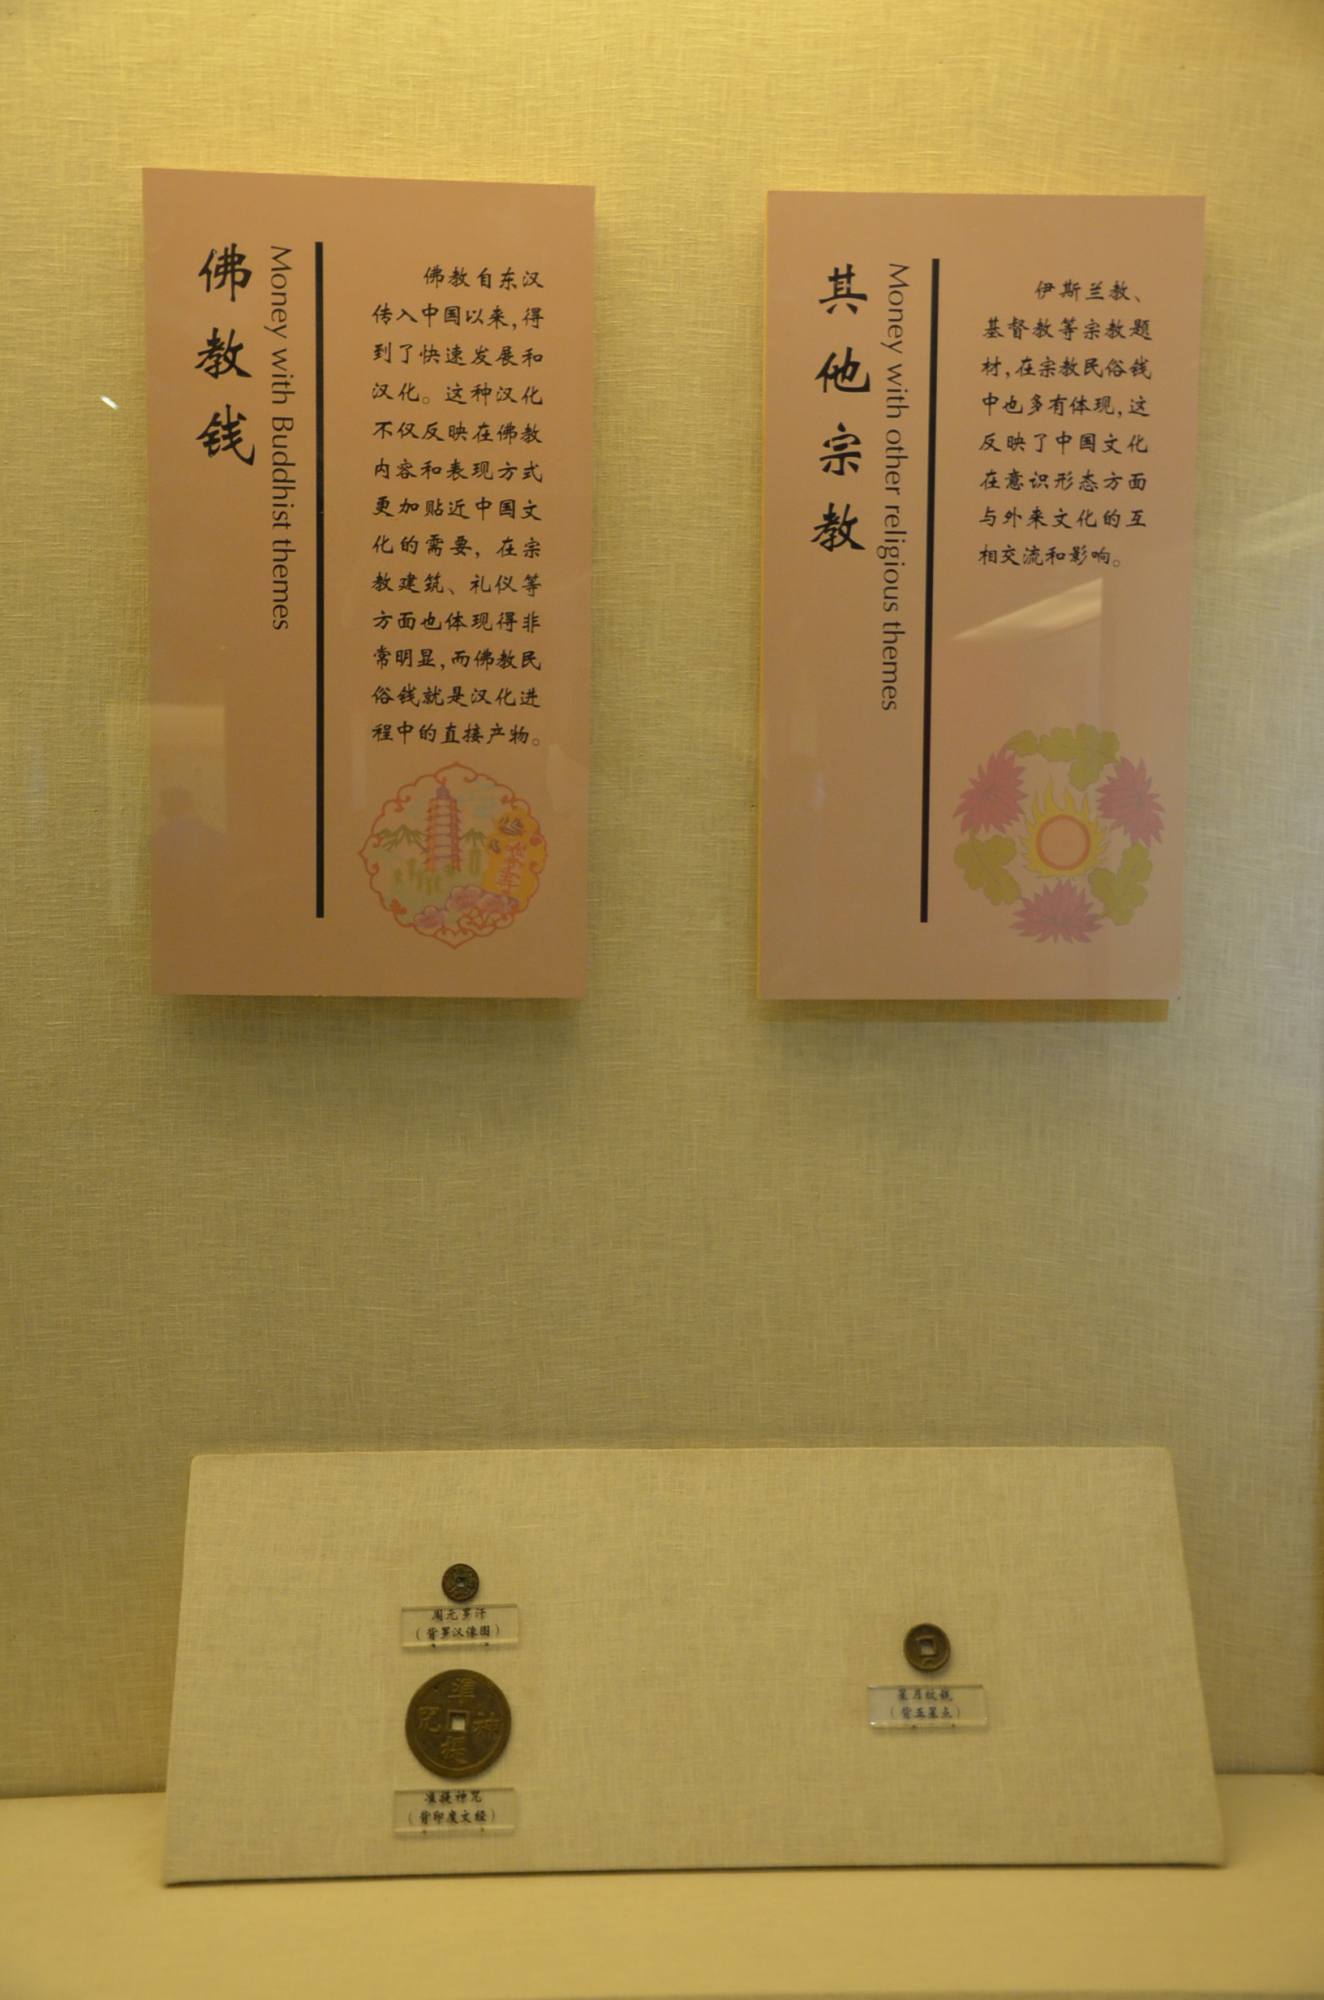 佛教钱
Money with Buddhist themes
佛教自东汉
传入中国以来，得
到了快速发展和
汉化。这种汉化
不仅反映在佛教
内容和表现方式
更加贴近中国文
化的需要，在宗
教建筑、礼仪等
方面也体现得非
常明显，而佛教民
俗钱就是汉化进
程中的直接产物。
其他宗教
Money with other religious themes
伊斯兰教、
基督教等宗教题
材，在宗教民俗钱
中也多有体现，这
反映了中国文化
在意识形态方面
与外来文化的互
相交流和影响。
周元罗汗
（背罗汉像图）
準提神咒
准提神咒
（背印度文经）
星月纹钱
（背五星点）